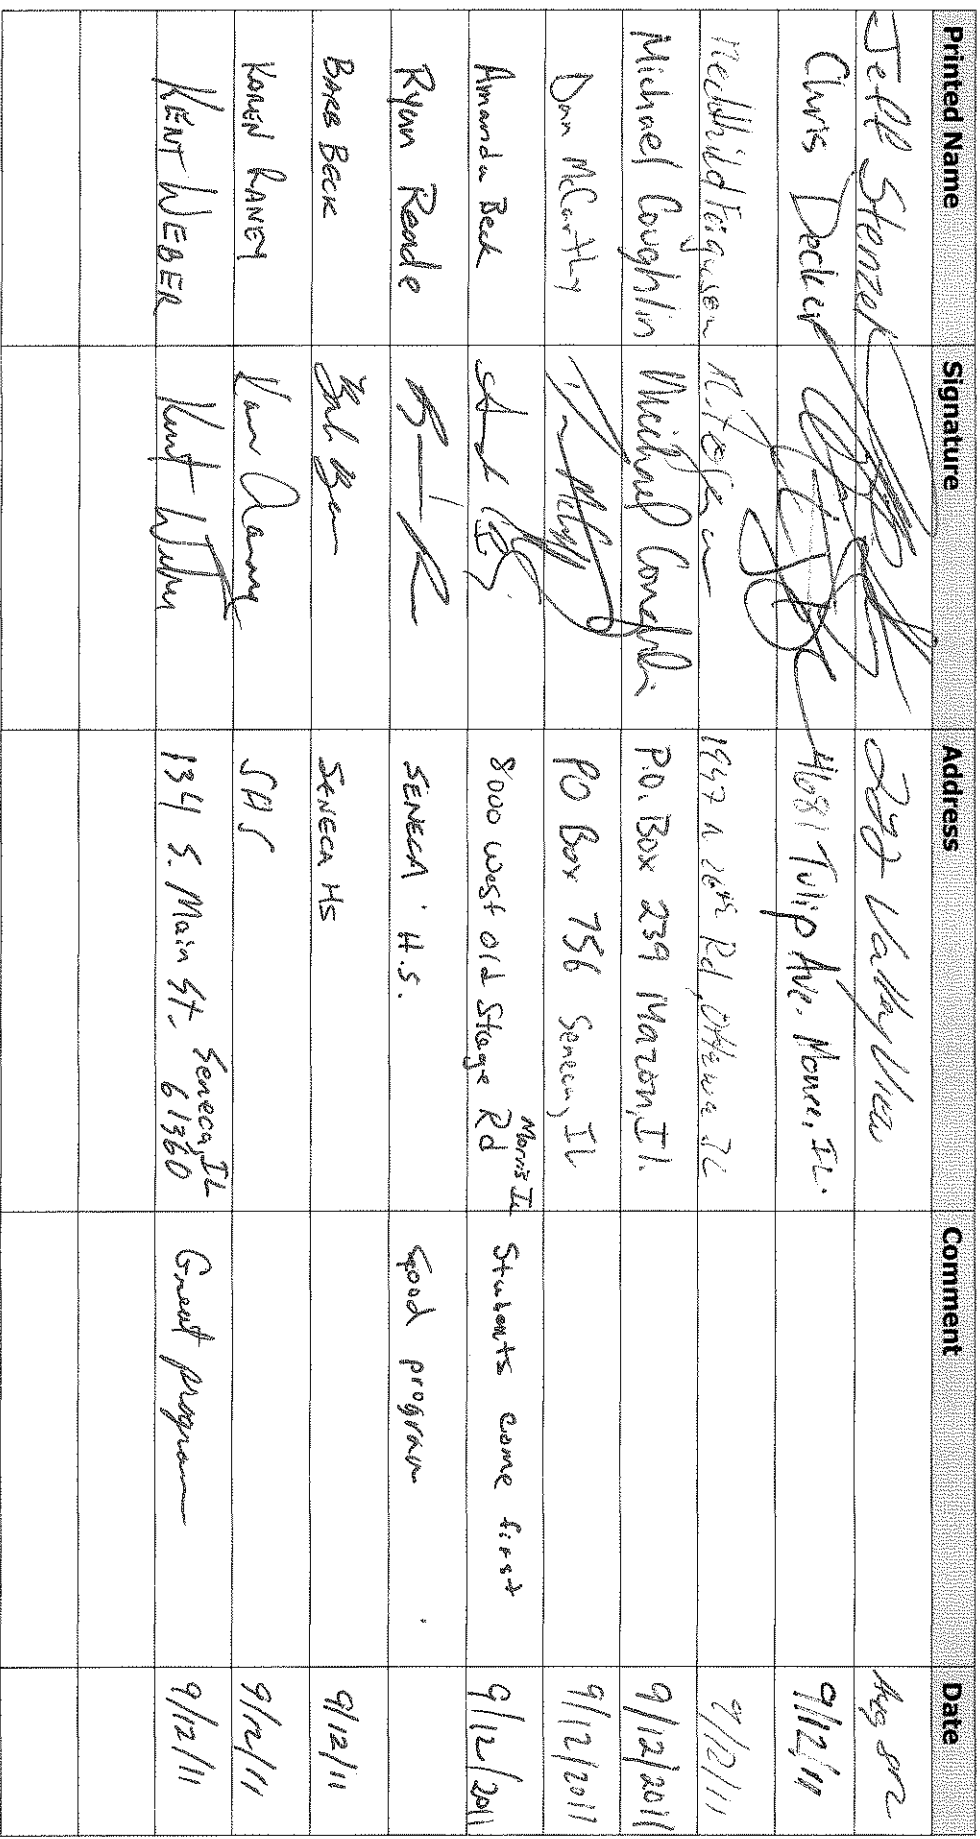 Printed Name Signature Address Comment Date
Jeff Stenzel Valley View Aug
Chris Decker 4681 Tulip Ave. Monee, IL. 9/12/11
Mechthild 1947 N 26th Rd, Ottawa IL 9/12/11
Michael Coughlin Michael Coughlin P.O. Box 239 Mazon, Il. 9/12/2011
Dan McCarthy PO Box 756 Seneca, IL 9/12/2011
Amanda Beck 8000 West Old Stage Rd Morris IL Students come first 9/12/2011
Ryan Reade SENECA H.S. Good program.
BARB BECK Barb Beck SENECA HS 9/12/11
KAREN RANEY Karen Raney SHS 9/12/11
KENT WEBER Kent Weber 134 S. Main St. Seneca, IL 61360 Great program 9/12/11